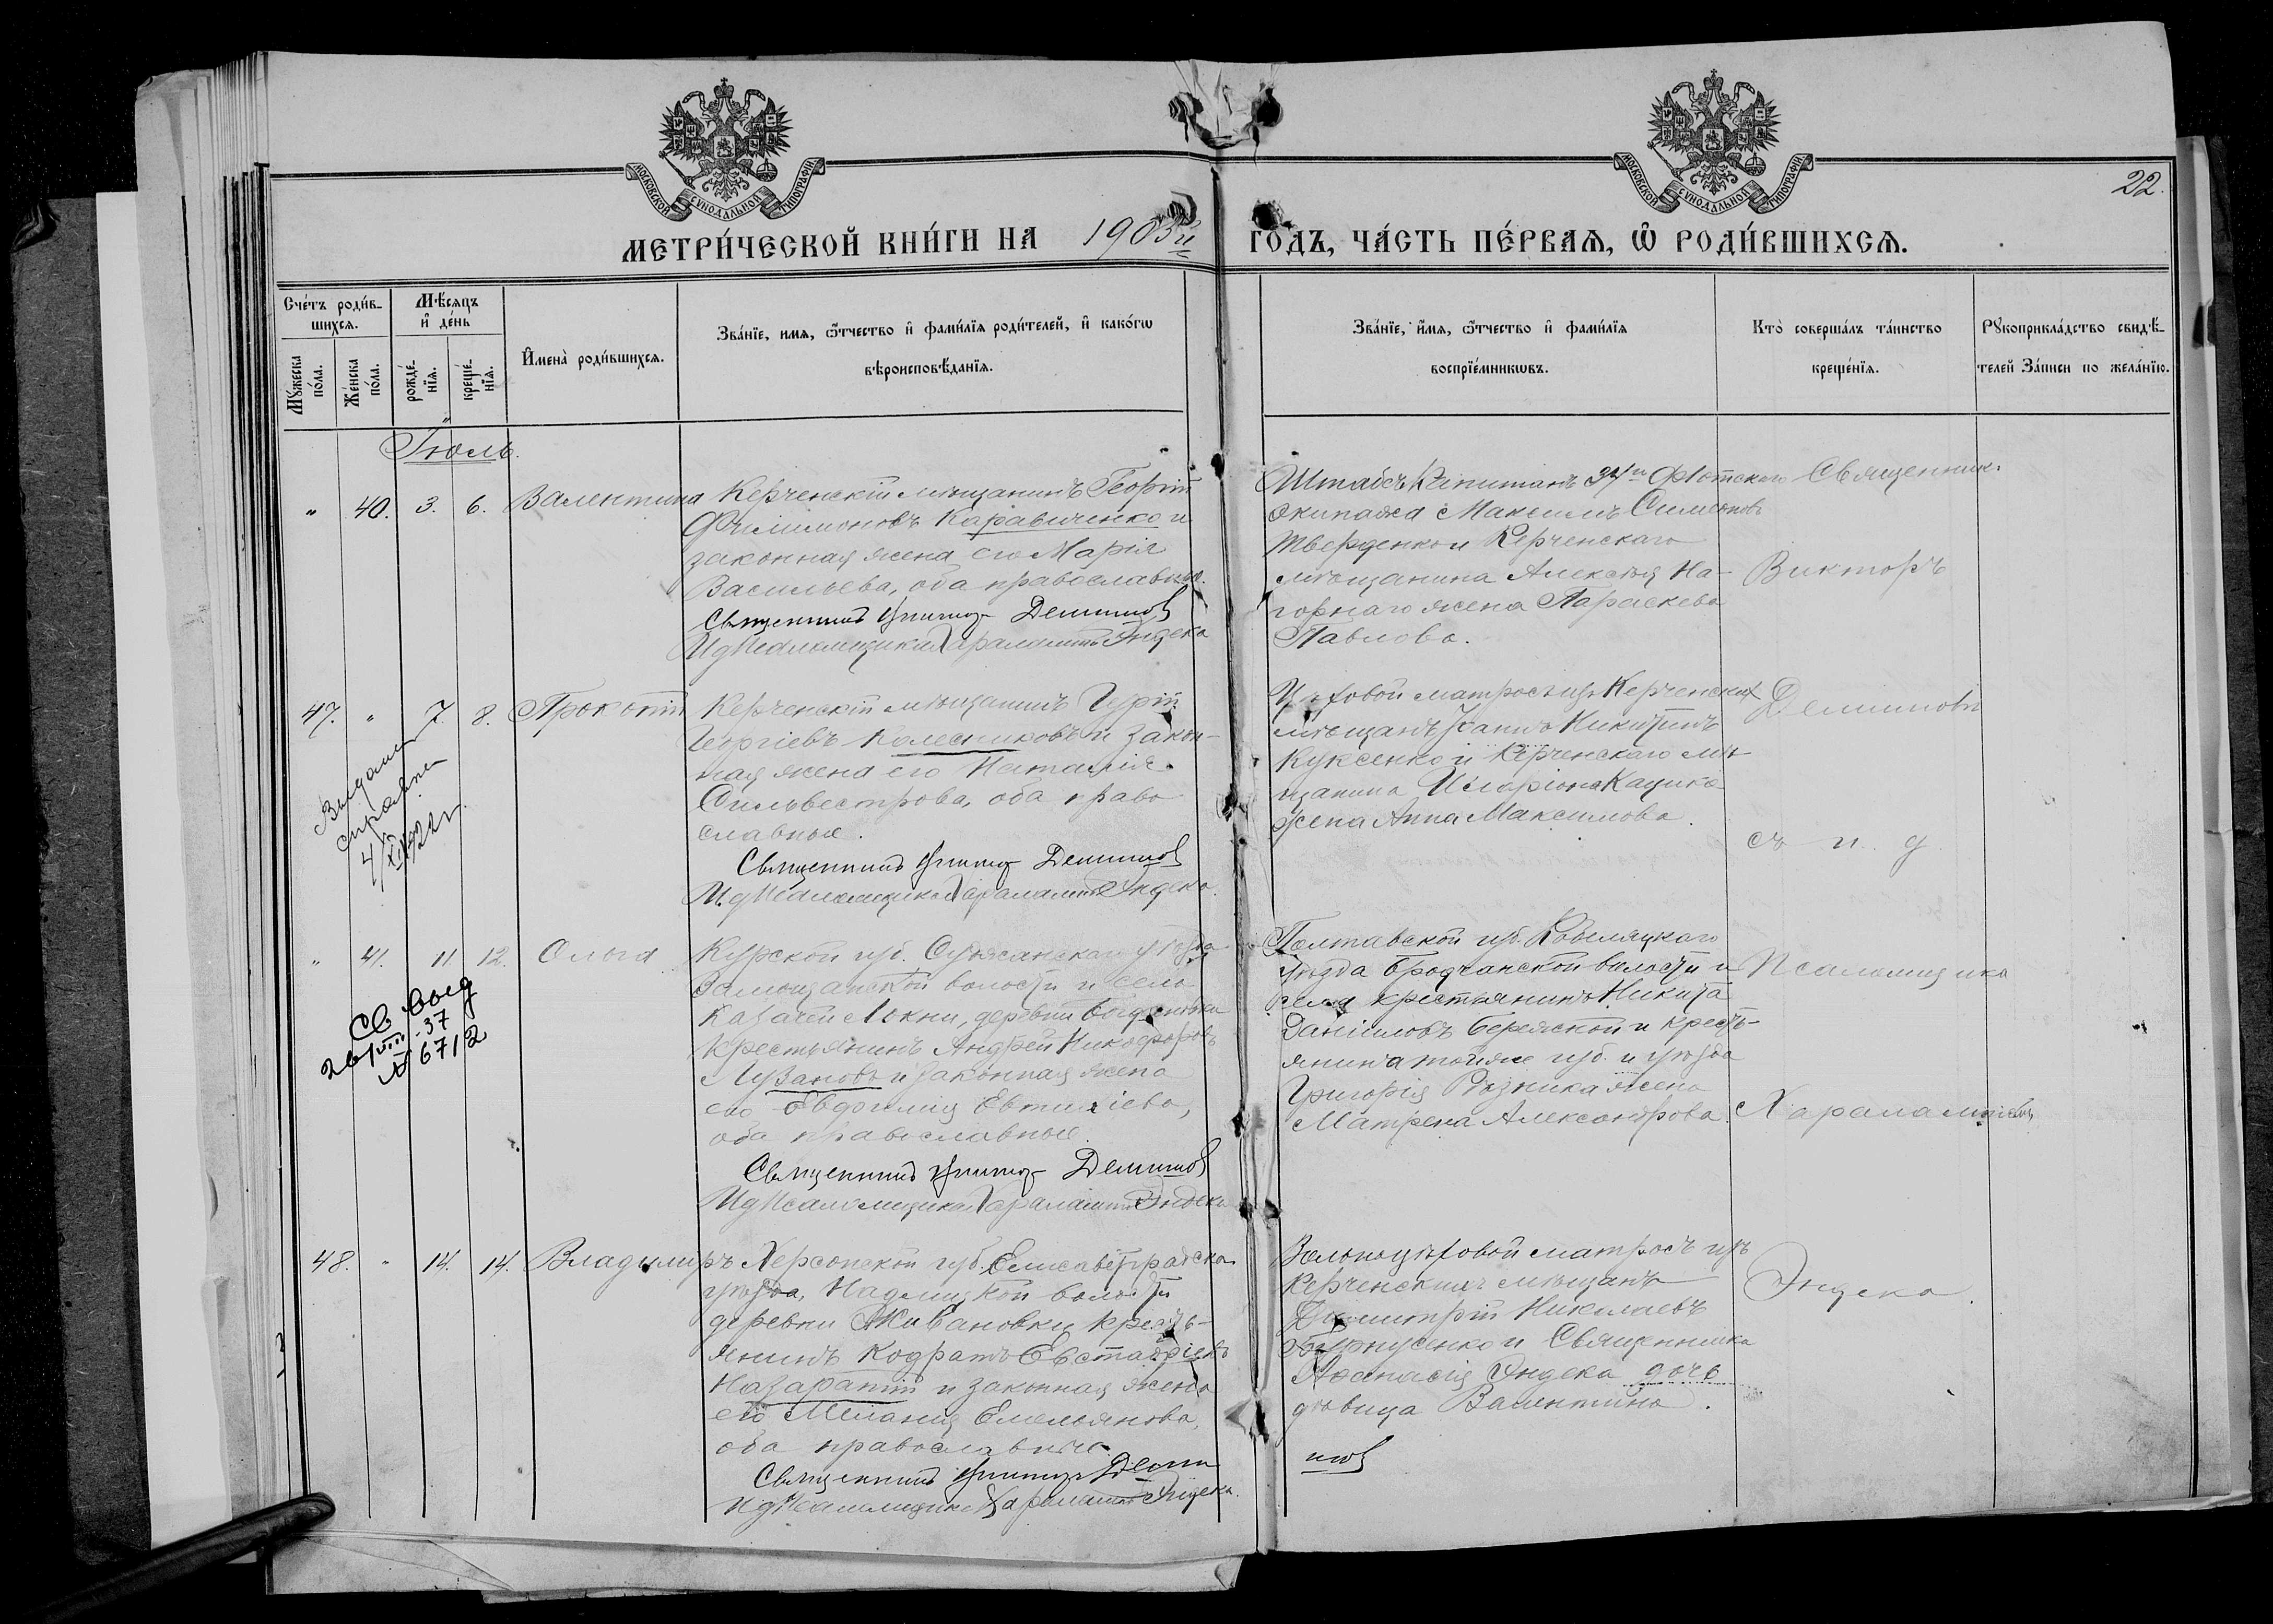 МОСКОВСКОЙ СУНОДАЛЬНОЙ ТИПОГРАФІИ
МОСКОВСКОЙ СУНОДАЛЬНОЙ ТИПОГРАФІИ
22.
МЕТРИ́ЧЕСКОЙ КНИ́ГИ НА 1903й ГОДЪ, ЧА́СТЬ ПЕ́РВАѦ, Ѿ РОДИ́ВШИХСѦ.
Сче́тъ роди́в-
шихсѧ.
Мꙋжеска по́ла.
Же́нска по́ла.
Мѣ́сѧцъ
и҆ де́нь
рожде́-
нїѧ.
креще́-
нїѧ.
И҆мена̀ роди́вшихсѧ.
Зва́нїе, имѧ, ѻ҆́тчество и҆ фами́лїѧ роди́телей, и҆ како́гѡ
вѣроисповѣ́данїѧ.
Зва́нїе, и҆́мѧ, ѻ҆́тчество и҆ фами́лїѧ
воспрїе́мникѡвъ.
Кто̀ соверша́лъ та́инство
креще́нїѧ.
Рꙋкоприкла́дство свидѣ́-
телей За́писи по жела́нїю.
Іюль.
" 40. 3. 6. Валентина
Керченскій мѣщанинъ Георгій
Филимоновъ Каравиченко и
законная жена его Марія
Васильева, оба православные.
Священникъ Викторъ Демишовъ
И д Псаломщика Харалампій Эндека
Штабсъ Капитанъ 34го Флотскаго
Экипажа Максимъ Симеоновъ
Тверденко и Керченскаго
мѣщанина Алексѣя На-
горнаго жена Параскева
Павлова.
Священник.
Викторъ
47. " 7. 8. Прокопій
Керченскій мѣщанинъ Гурій
Георгіевъ Колесниковъ и закон-
ная жена его Наталія
Сильвестрова, оба право
славные.
Священникъ Викторъ Демишовъ
И.д Псаломщика Харалампій Эндека.
Цѣховой матросъ изъ Керченских
мѣщанъ Іоаннъ Никитинъ
Куксенко и Керченскаго мѣ-
щанина Иларіона Кацика
жена Анна Максимова.
Демишовъ
съ и. д
Выдана
справка
4/XI 1922 г.
" 41. 11 12. Ольга
Курской губ. Суджанскаго уѣзда
Замощанской волости и село
Казачей Локни, деревни
крестьянинъ Андрей Никифоровъ
Лузановъ и законная жена
его Евфимія Евтихіева,
оба православные.
Священникъ Викторъ Демишовъ
Ид Псаломщика Харалампій Эндека
Полтавской губ. Кобеляцкаго
уѣзда Бродчанской волости и
села крестьянинъ Никита
Даніиловъ Бережской и кресть-
янина тойже губ. и уѣзда
Григорія Рѣзника жена
Матрена Александрова.
Псаломщика
Харалампій
Св выд
26/VIII-37
№ 6712
48. " 14. 14. Владиміръ
Херсонской губ. Елисаветградска
уѣзда, Надлицкой волости
деревни Живановки кресть-
янинъ Кодратъ Евстафіевъ
Назарапій и законная жена
его Меланія Емельянова,
оба православные.
Священникъ Викторъ Деми
И д Псаломщика Харалампій Эндека.
Вольноцѣховой матросъ изъ
Керченскихъ мѣщанъ
Димитрій Николаевъ
и Священника
Афанасія Эндека дочь
дѣвица Валентина.
шовъ
Эндека.